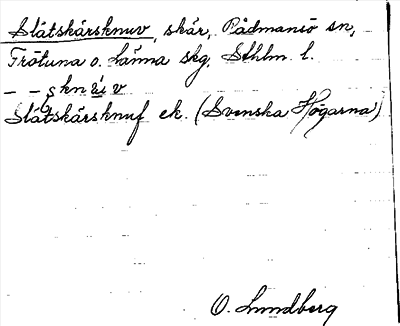 Slätskärsknuv, skär, Rådmansö sn,
Frötuna o. Länna skg, Sthlm l.
– – sknu̇v
Slätskärsknuf ek. (Svenska Högarna)
O. Lundberg